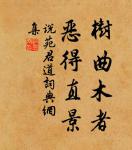 樹曲木者
惡得直景
說苑君道詞典網
集